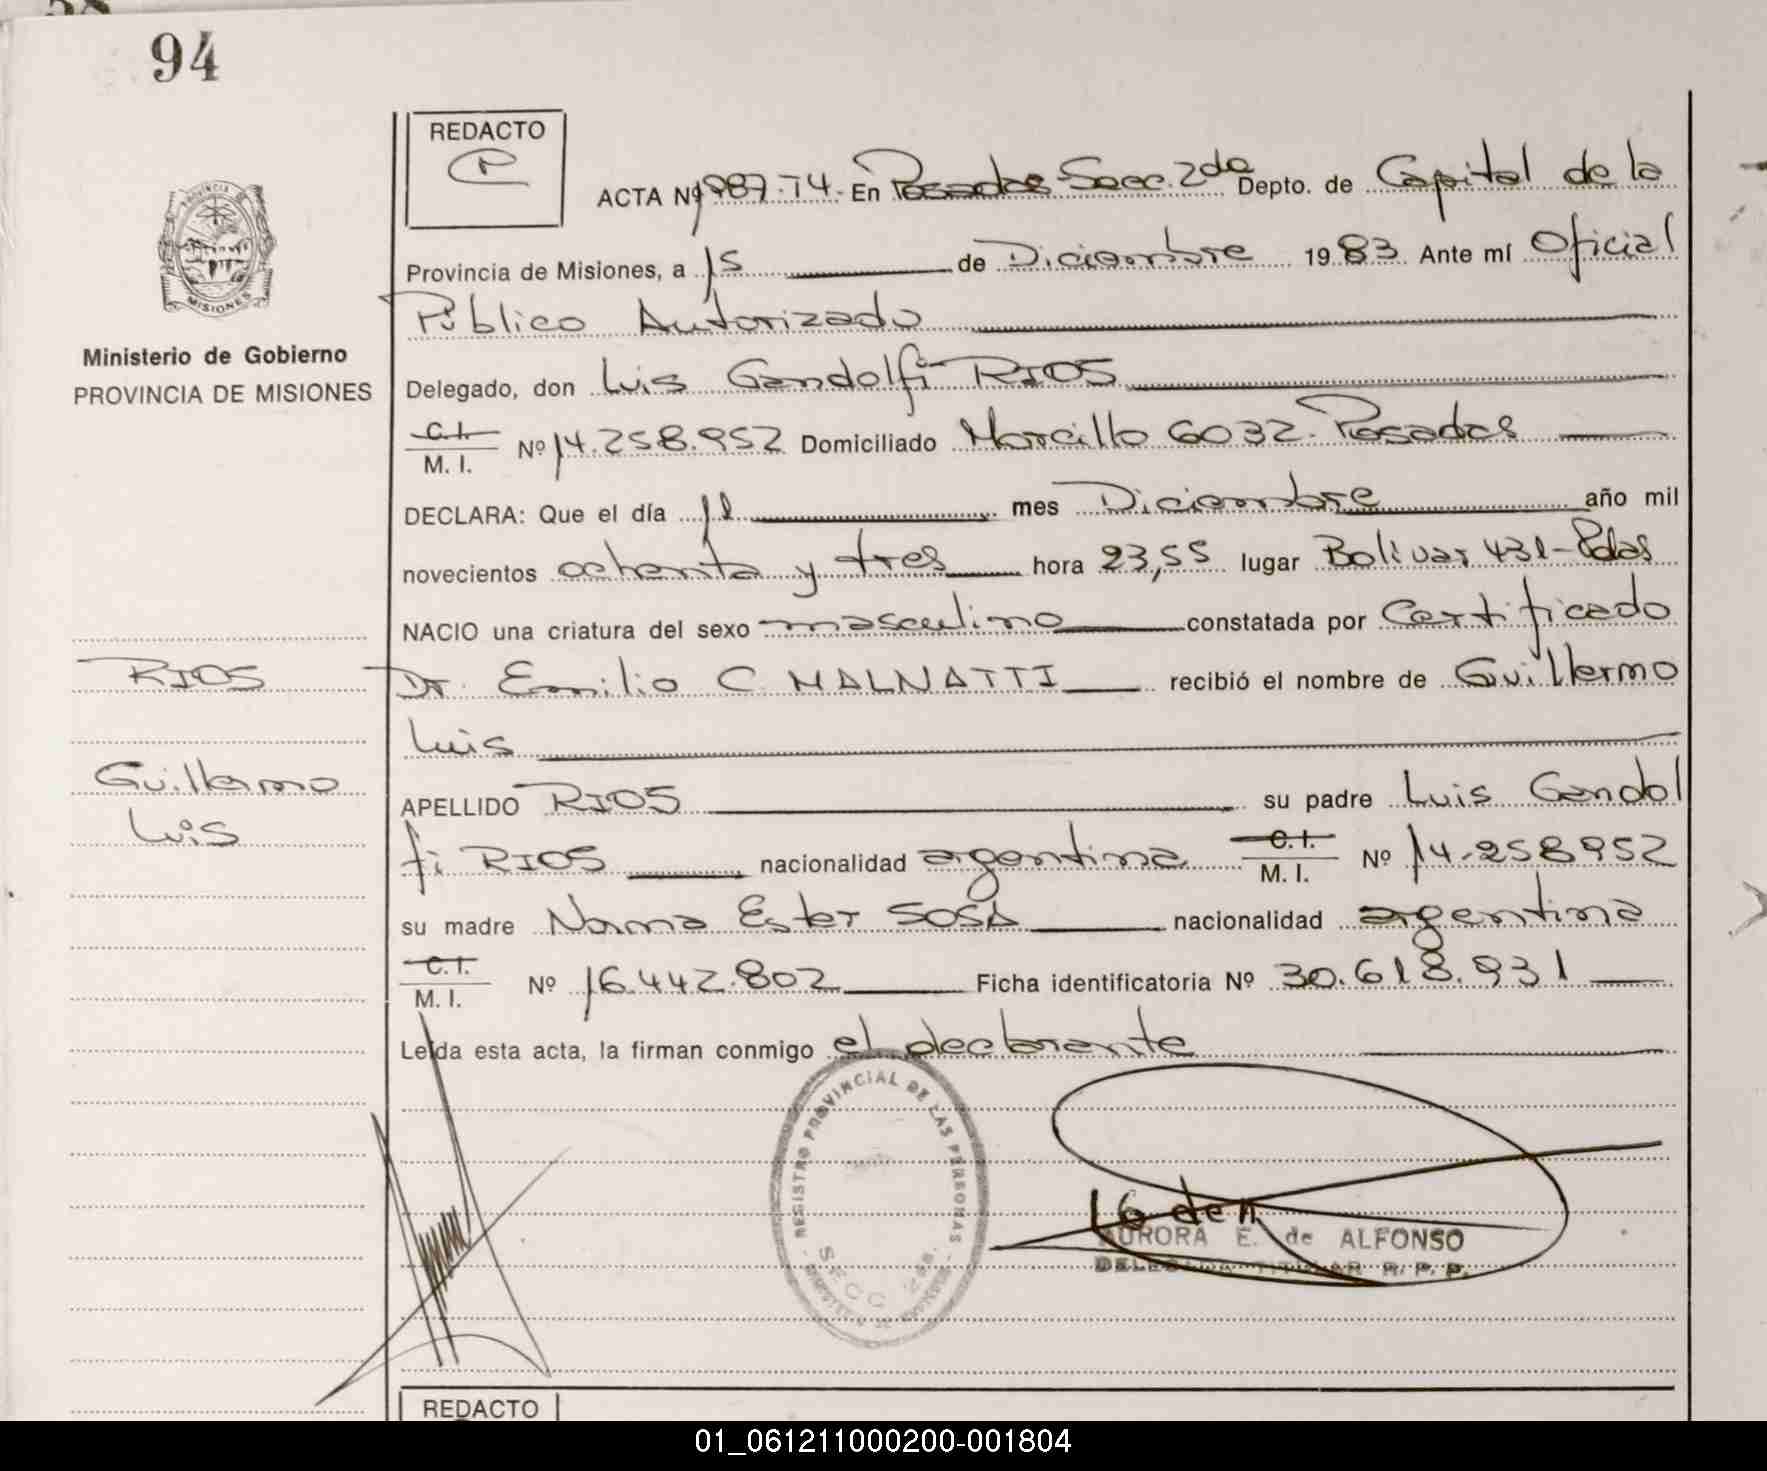 94
REDACTO
ACTA Nº 1987-T4- En Posadas Secc. 2da Depto. de Capital de la
Provincia de Misiones, a 15 de Diciembre 1983 Ante mí Oficial
Público Autorizado
Delegado, don Luis Gandolfi RIOS
C.I.
M. I. Nº 14.258.952 Domiciliado Morcillo 6032-Posadas
DECLARA: Que el día 11 mes Diciembre año mil
novecientos ochenta y tres hora 23,55 lugar Bolivar 431-Pdas
NACIO una criatura del sexo masculino constatada por Certificado
Dr. Emilio C. MALNATTI recibió el nombre de Guillermo
Luis
APELLIDO RIOS su padre Luis Gandol
fi RIOS nacionalidad argentina C.I. M. I. Nº 14.258952
su madre Norma Ester SOSA nacionalidad argentina
C.I.
M. I. Nº 16.442.802 Ficha identificatoria Nº 30.618.931
Leída esta acta, la firman conmigo el declarante
MISIONES
Ministerio de Gobierno
PROVINCIA DE MISIONES
RIOS
Guillermo
Luis
REGISTRO PROVINCIAL DE LAS PERSONAS
SECC 2da.
AURORA E. de ALFONSO
DELEGADA TITULAR R. P. P.
REDACTO
01_061211000200-001804